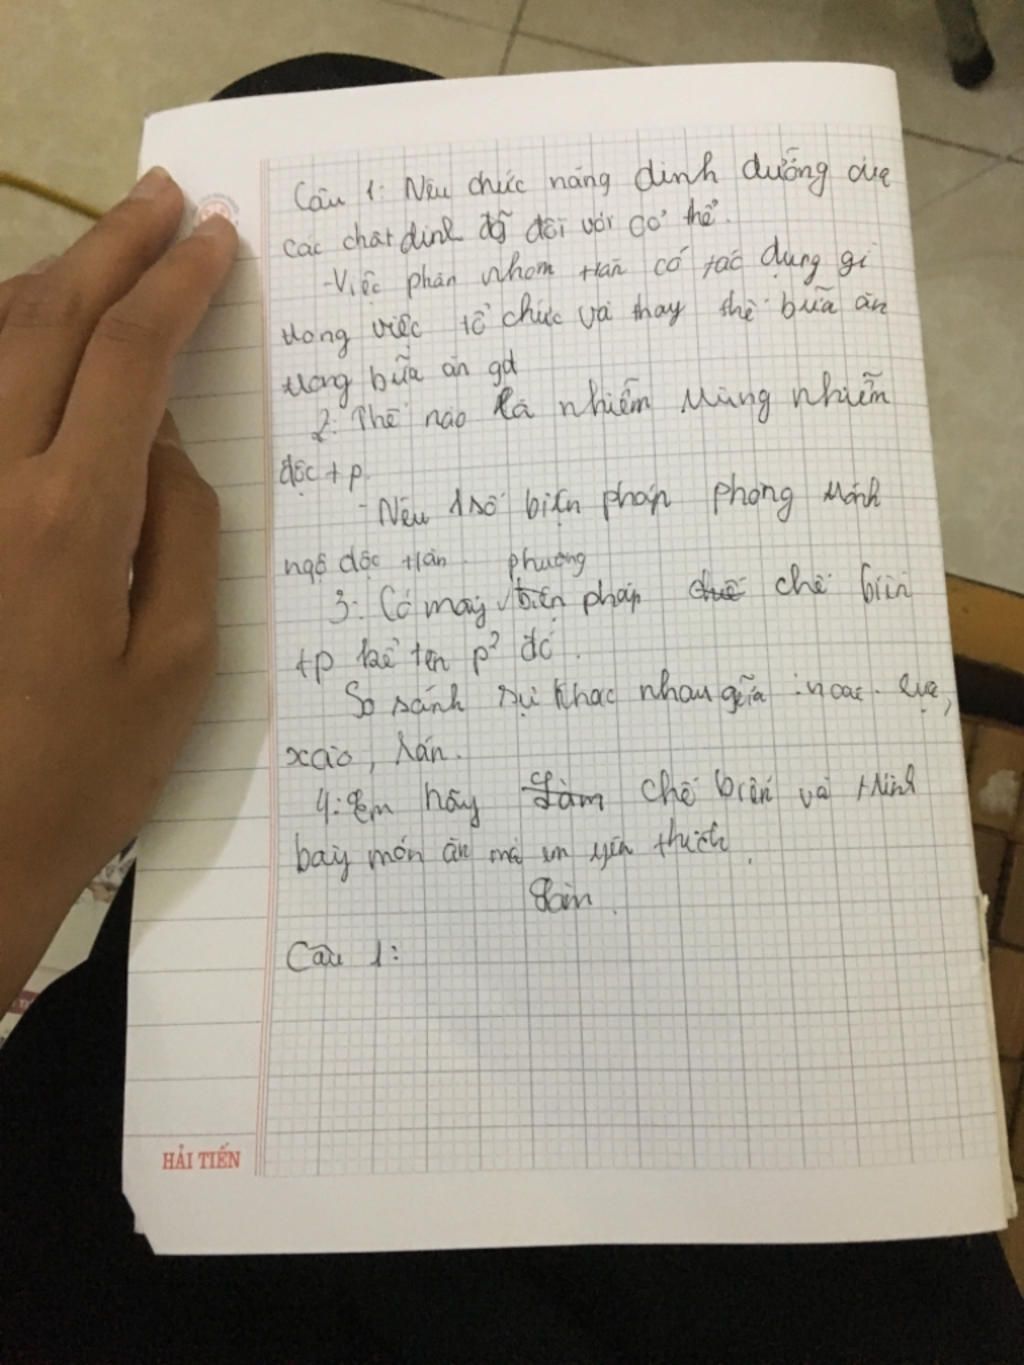 Câu 1: Nêu chức năng dinh dưỡng của
các chất dinh đối với cơ thể.
-Việc phân nhóm t.ăn có tác dụng gì
trong việc tổ chức và thay thế bữa ăn
trong bữa ăn gđ
2: Thế nào là nhiễm trùng nhiễm
độc tp.
- Nêu 1 số biện pháp phòng tránh
ngộ độc t.ăn. phương
3: Có mấy biện pháp chế biến
tp kể tên p² đó.
So sánh sự khác nhau giữa
xào, rán.
4: Em hãy Làm chế biến và trình
bày món ăn mà em yêu thích.
Câu 1:
HẢI TIẾN